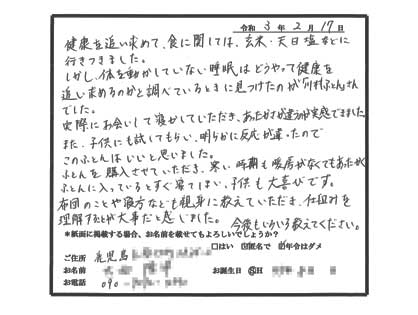 令和 3 年 2 月 17 日
健康を追い求めて、食に関しては、玄米・天日塩などに
行きつきました。
しかし、体を動かしていない睡眠はどうやって健康を
追い求めるのかと調べているときに見つけたのが「川村ふとんさん
でした。
実際にお会いして寝かせていただき、あたたかさが違うのが実感できました。
また、子供にも試してもらい、明らかに反応が違ったので
このふとんはいいと思いました。
ふとんを購入させていただき、寒い時期も暖房がなくてもあたたか
ふとんに入っているとすぐ寝てしまい、子供も大喜びです。
布団のことや寝方なども親身に教えていただき、仕組みを
理解することが大事だと感じました。今後もいろいろ教えてください。
*紙面に掲載する場合、お名前を載せてもよろしいでしょうか?
□はい 匿名で □年令はダメ
ご住所 鹿児島
お名前 お誕生日
お電話 090-